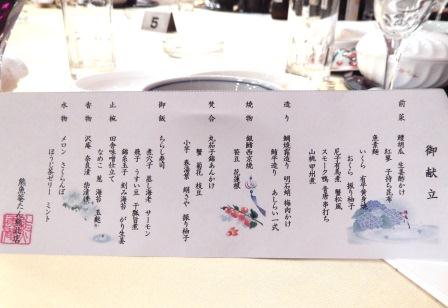 5
御献立
前菜
鱧胡瓜 生姜酢かけ
紅蓼 子持ち昆布
いくら
おくら 振り柚子
魚素麺
尼子有馬煮 蟹松風
スモーク鴨 青唐串打ち
山桃甲州煮
造り
鯛焼霜造り 明石蛸 梅肉かけ
鮪平造り あしらい一式
焼物
銀鱈西京焼
笹豆 花蓮根
焚合
丸茄子錦あんかけ
蟹 菊花 枝豆
小芋 巻湯葉 絹さや 振り柚子
御飯
ちらし寿司
煮穴子 蒸し海老 サーモン
飛子 うすい豆 干瓢旨煮
錦糸玉子 刻み海苔 がり生姜
止椀
田舎味噌仕立て
なめこ 葱 海苔 玉麩
香物
沢庵 奈良漬 柴漬
水物
メロン さくらんぼ
ほうじ茶ゼリー ミント
熊魚菴たん熊北店